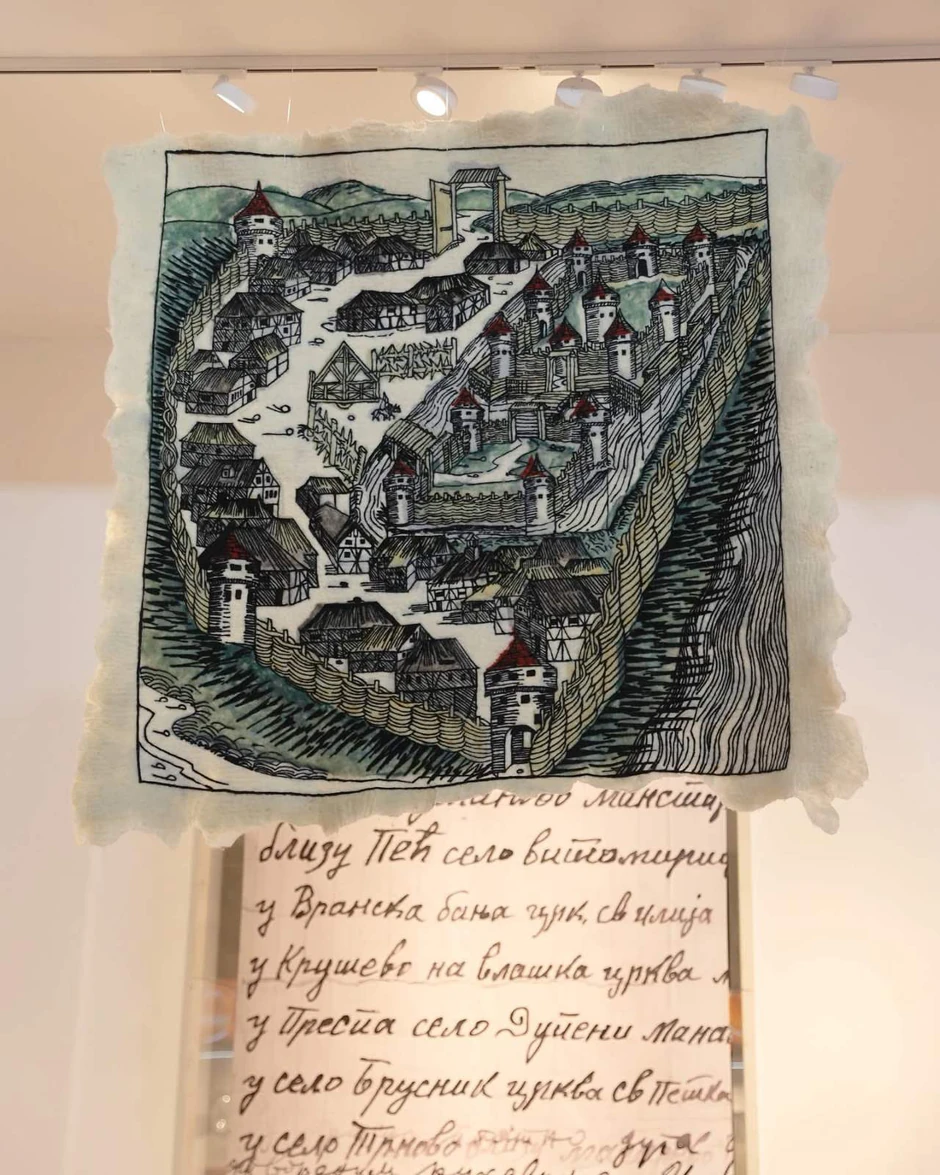 манстир
близу Пећ село витомириц
у Вранска бања црк. св илија
у Крушево на влашка црква
у Преспа село Дупени мана
у село Брусник црква св Петка
у село Трново